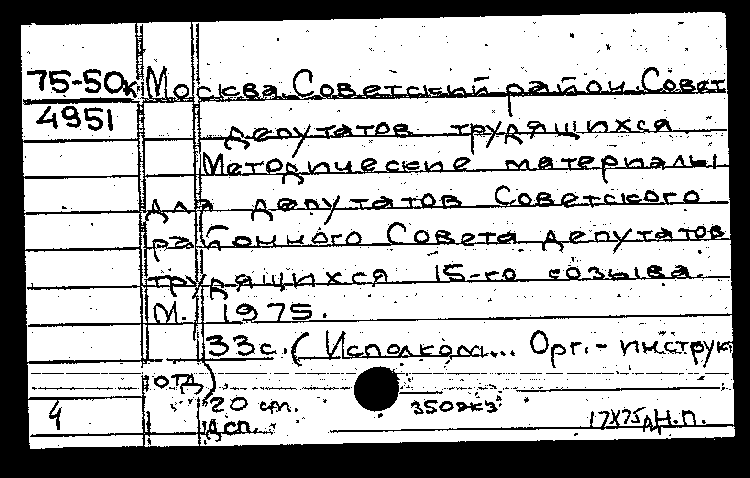 75-50к Москва. Советский район. Совет
4951 депутатов трудящихся
Методические материалы
для депутатов Советского
районного Совета депутатов
трудящихся 15-го созыва.
М., 1975.
33с. (Исполком... Орг.- инструк
отд)
20 см. 350экз
4 дсп. Н.п.